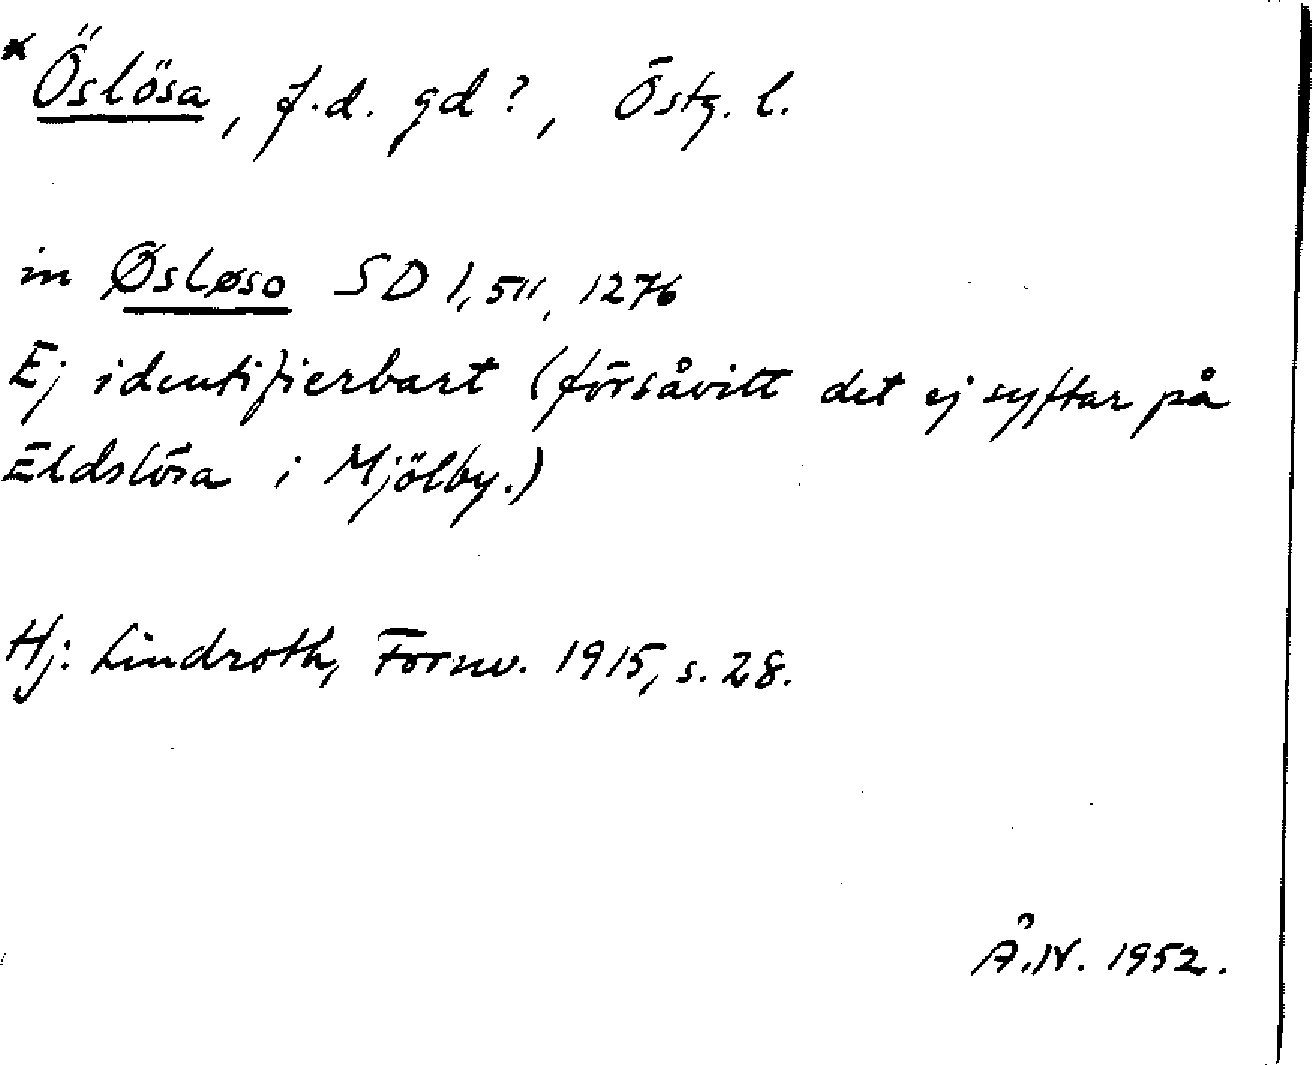 * Öslösa, f.d. gd?, Östg. l.
in Øsløso SD 1, 511, 1276
Ej identifierbart (försåvitt det ej syftar på
Eldslösa i Mjölby.)
Hj. Lindroth, Fornv. 1915, s. 28.
Å.N. 1952.